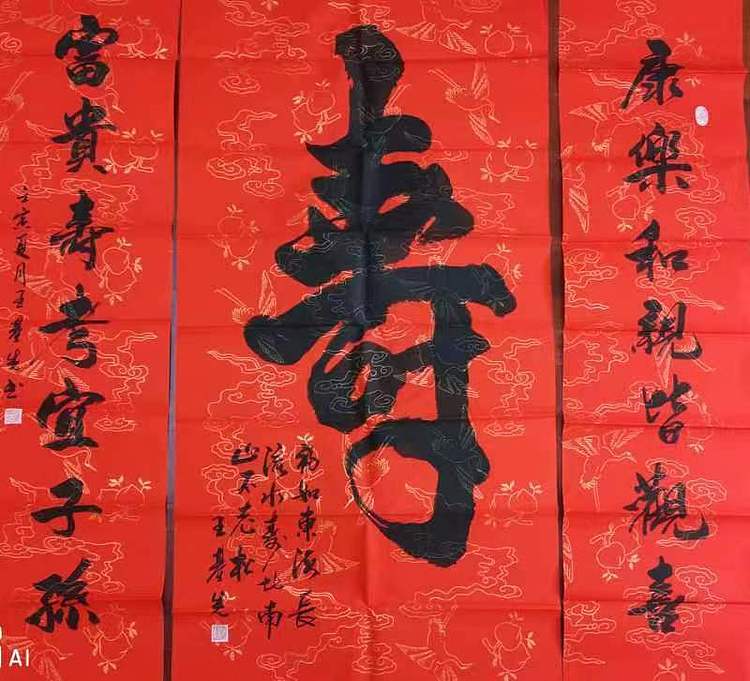 康樂和親皆觀喜
壽
福如東海長
流水壽比南
山不老松
王
富貴壽考宜子孫
壬寅夏月王
AI